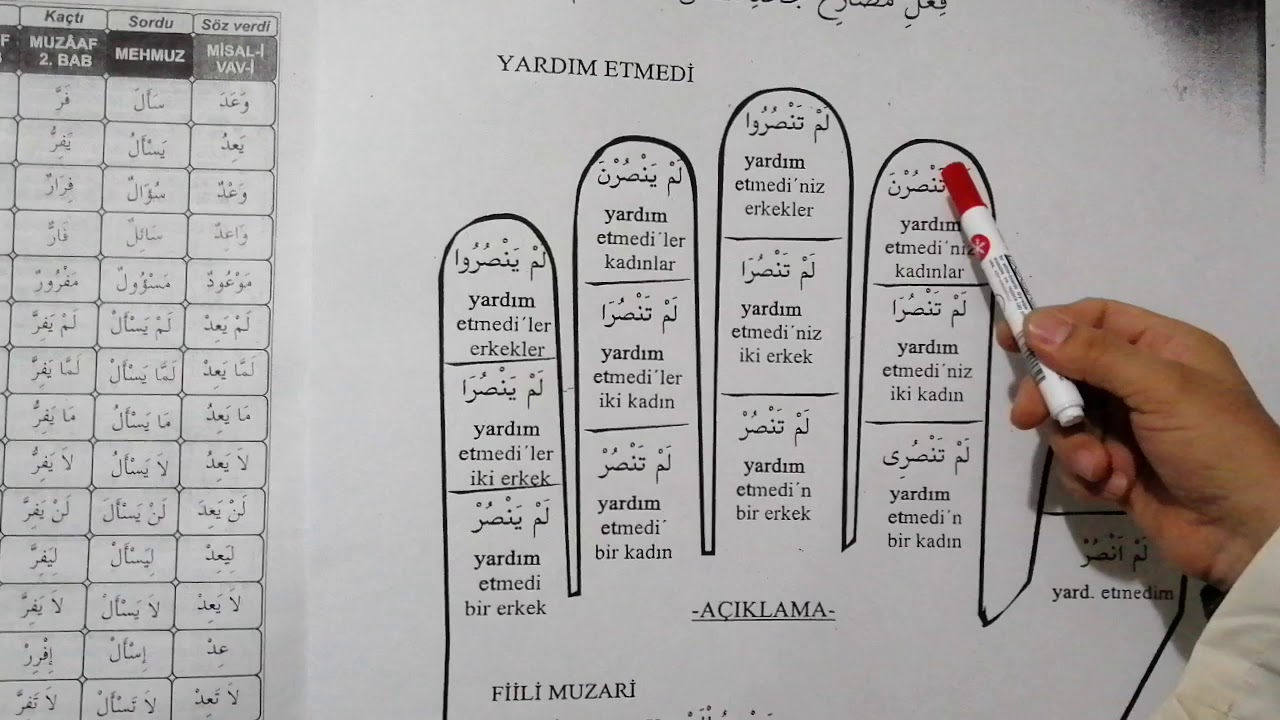 Kaçtı Sordu Söz verdi
MUZÂAF 2. BAB MEHMUZ MİSAL-İ VAV-İ
فَرَّ سَأَلَ وَعَدَ
يَفِرُّ يَسْأَلُ يَعِدُ
فِرَارٌ سُؤَالٌ وَعْدٌ
فَارٌّ سَائِلٌ وَاعِدٌ
مَفْرُورٌ مَسْؤُولٌ مَوْعُودٌ
لَمْ يَفِرَّ لَمْ يَسْأَلْ لَمْ يَعِدْ
لَمَّا يَفِرَّ لَمَّا يَسْأَلْ لَمَّا يَعِدْ
مَا يَفِرُّ مَا يَسْأَلُ مَا يَعِدُ
لَا يَفِرُّ لَا يَسْأَلُ لَا يَعِدُ
لَنْ يَفِرَّ لَنْ يَسْأَلَ لَنْ يَعِدَ
لِيَفِرَّ لِيَسْأَلْ لِيَعِدْ
لَا يَفِرَّ لَا يَسْأَلْ لَا يَعِدْ
إِفْرِرْ إِسْأَلْ عِدْ
لَا تَفِرَّ لَا تَسْأَلْ لَا تَعِدْ
YARDIM ETMEDİ
لَمْ يَنْصُرُوا
yardım
etmedi´ler
erkekler
لَمْ يَنْصُرَا
yardım
etmedi´ler
iki erkek
لَمْ يَنْصُرْ
yardım
etmedi
bir erkek
لَمْ يَنْصُرْنَ
yardım
etmedi´ler
kadınlar
لَمْ تَنْصُرَا
yardım
etmedi´ler
iki kadın
لَمْ تَنْصُرْ
yardım
etmedi´
bir kadın
لَمْ تَنْصُرُوا
yardım
etmedi´niz
erkekler
لَمْ تَنْصُرَا
yardım
etmedi´niz
iki erkek
لَمْ تَنْصُرْ
yardım
etmedi´n
bir erkek
تَنْصُرْنَ
yardım
etmedi´niz
kadınlar
لَمْ تَنْصُرَا
yardım
etmedi´niz
iki kadın
لَمْ تَنْصُرِى
yardım
etmedi´n
bir kadın
لَمْ اَنْصُرْ
yard. etmedim
-AÇIKLAMA-
FİİLİ MUZARİ